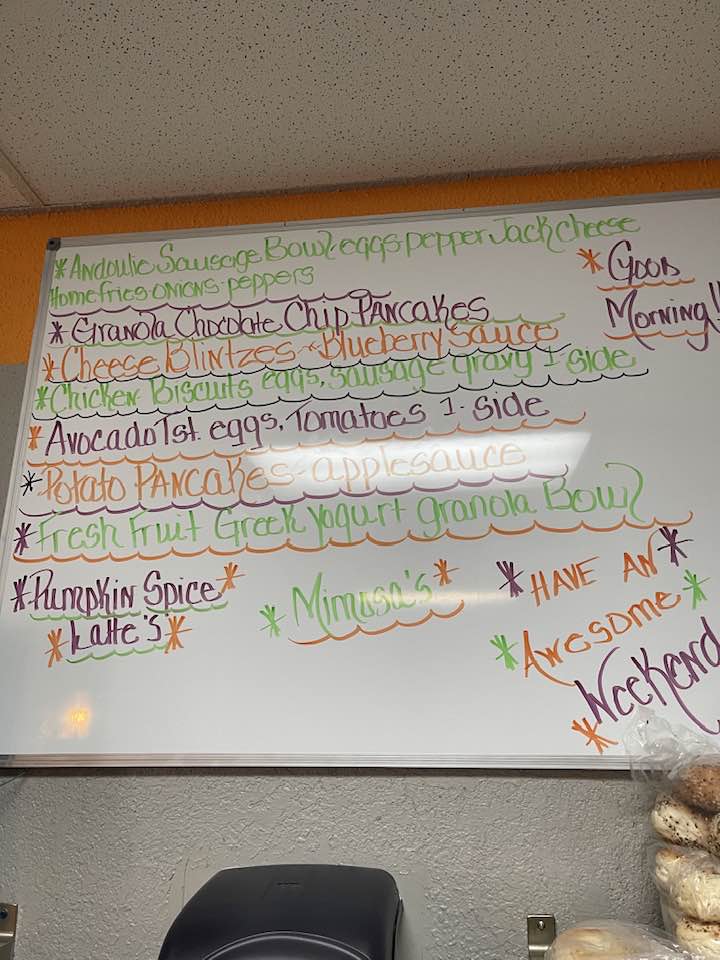 *Andoulie Sausage Bowl eggs pepper Jack cheese
Homefries onions peppers
*Granola Chocolate Chip Pancakes
*Cheese Blintzes - Blueberry Sauce
*Chicken Biscuits eggs, sausage gravy 1 side
*Avocado Tst. eggs, Tomatoes 1. side
*Potato Pancakes - applesauce
*Fresh Fruit Greek yogurt granola Bowl
*Good
Morning!!
*Pumpkin Spice*
*Latte's*
*Mimosa's*
*Have an*
*Awesome*
Weekend
*